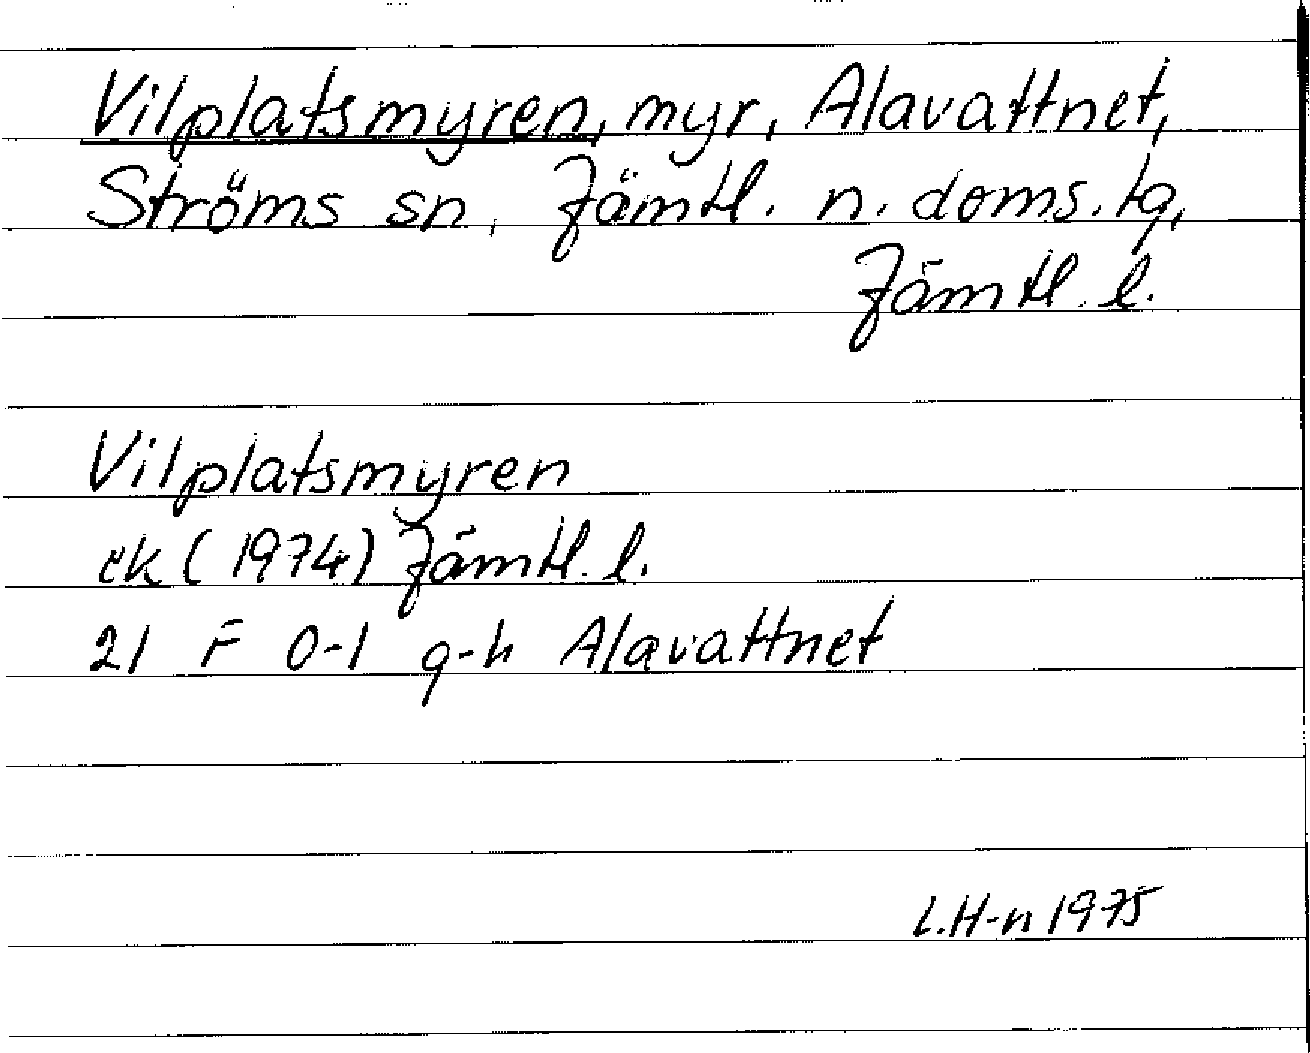 Vilplatsmyren, myr, Alavattnet,
Ströms sn, Jämtl. n. doms. tg,
Jämtl. l.
Vilplatsmyren
ek (1974) Jämtl. l.
21 F 0-1 g-h Alavattnet
L.H-n 1975